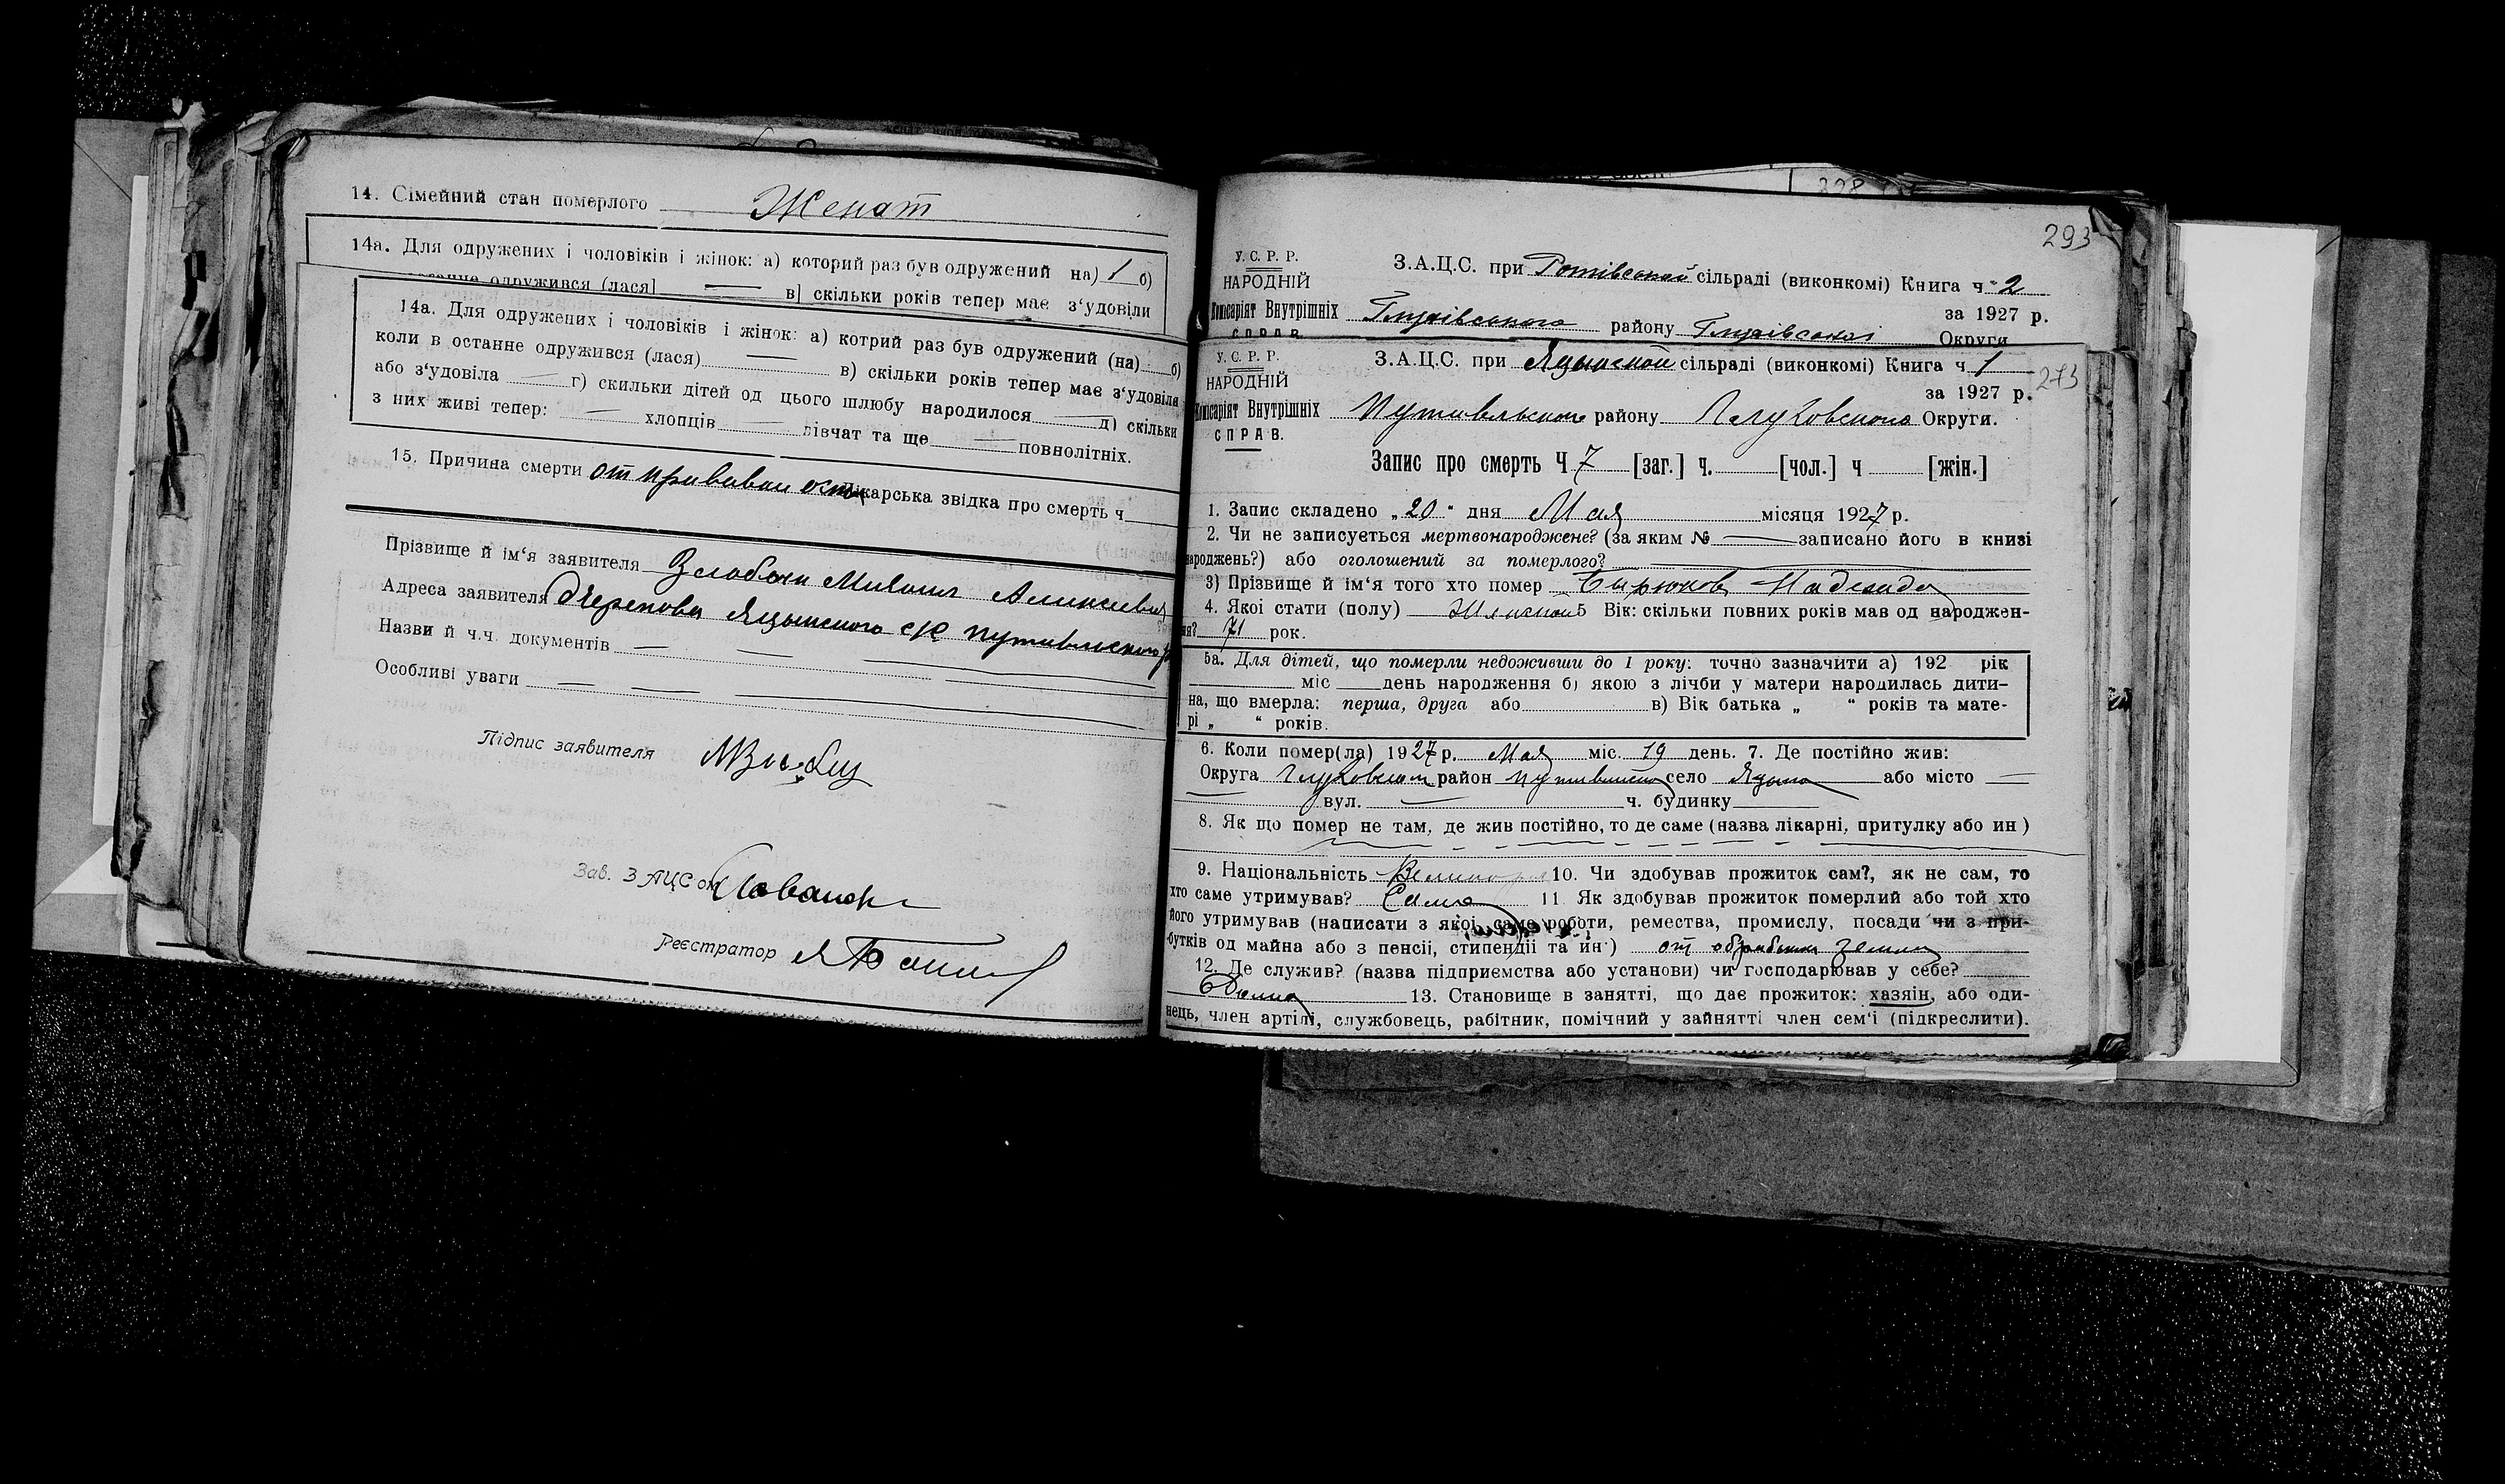 14. Сімейний стан померлого Женат
14а. Для одружених і чоловіків і жінок: а) которий раз був одружений на) 1 б)
останне одружився (лася] в] скільки років тепер має з‘удовіли
14а. Для одружених і чоловіків і жінок: а) котрий раз був одружений (на) б)
коли в останне одружився (лася) в) скільки років тепер має з‘удовіла
або з‘удовіла г) скильки дітей од цього шлюбу народилося д) скільки
з них живі тепер: хлопців дівчат та ще повнолітніх.
15. Причина смерти от Лікарська звідка про смерть ч
Прізвище й ім‘я заявителя Михаил Алексеевич
Адреса заявителя Яцынского с/с Путивльского
Назви й ч.ч. документів
Особливі уваги
Підпис заявителя
Зав. ЗАЦСом
Реєстратор
293
У. С. Р. Р.
НАРОДНІЙ
Комісаріят Внутрішніх
СПРАВ
З.А.Ц.С. при сільраді (виконкомі) Книга ч. 2
за 1927 р.
Глухівського району Глухівської Округи
273
У. С. Р. Р.
НАРОДНІЙ
Комісаріят Внутрішніх
СПРАВ.
З.А.Ц.С. при Яцынской сільраді (виконкомі) Книга ч 1
за 1927 р.
Путивльского району Глуховского Округи.
Запис про смерть Ч 7 [заг.] ч. [чол.] ч [жін.]
1. Запис складено „20“ дня Мая місяця 1927 р.
2. Чи не записується мертвонароджене? (за яким № записано його в книзі
народжень?) або оголошений за померлого?
3) Прізвище й ім‘я того хто помер Бирюкова Надежда
4. Якої стати (полу) Женской 5 Вік: скільки повних років мав од народжен-
ня? 71 рок.
5а. Для дітей, що померли недоживши до 1 року: точно зазначити а) 192 рік
міс день народження б) якою з лічби у матери народилась дити-
на, що вмерла: перша, друга або в) Вік батька „ “ років та мате-
рі „ “ років.
6. Коли помер(ла) 1927 р. Мая міс. 19 день. 7. Де постійно жив:
Округа Глуховский район Путивльский село Яцына або місто
вул. ч. будинку
8. Як що помер не там, де жив постійно, то де саме (назва лікарні, притулку або ин)
9. Національність 10. Чи здобував прожиток сам?, як не сам, то
хто саме утримував? Сама 11 Як здобував прожиток померлий або той хто
його утримував (написати з якої саме роботи, ремества, промислу, посади чи з при-
бутків од майна або з пенсії, стипендії та ин·) от обработки земли
12. Де служив? (назва підприємства або установи) чи господарював у себе?
13. Становище в занятті, що дає прожиток: хазяїн, або оди-
нець, член артілі, службовець, рабітник, помічний у зайнятті член сем‘ї (підкреслити).